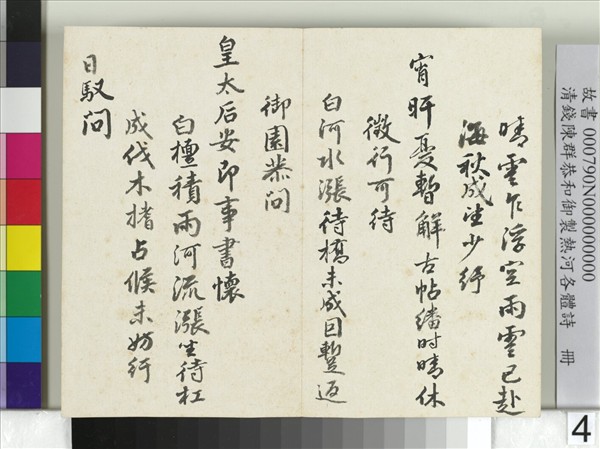 晴雲乍浮空雨雲已赴
海秋成望少紓
宵旰憂暫解古帖繙时晴休
徵行可待
白河水漲待橋未成回蹔返
御園恭问
皇太后安即事書懷
白檀積雨河流漲坐待杠
成伐木揩占候未妨行
日馭问
故書 000790N000000000
清錢陳群恭和御製熱河各體詩 冊
4